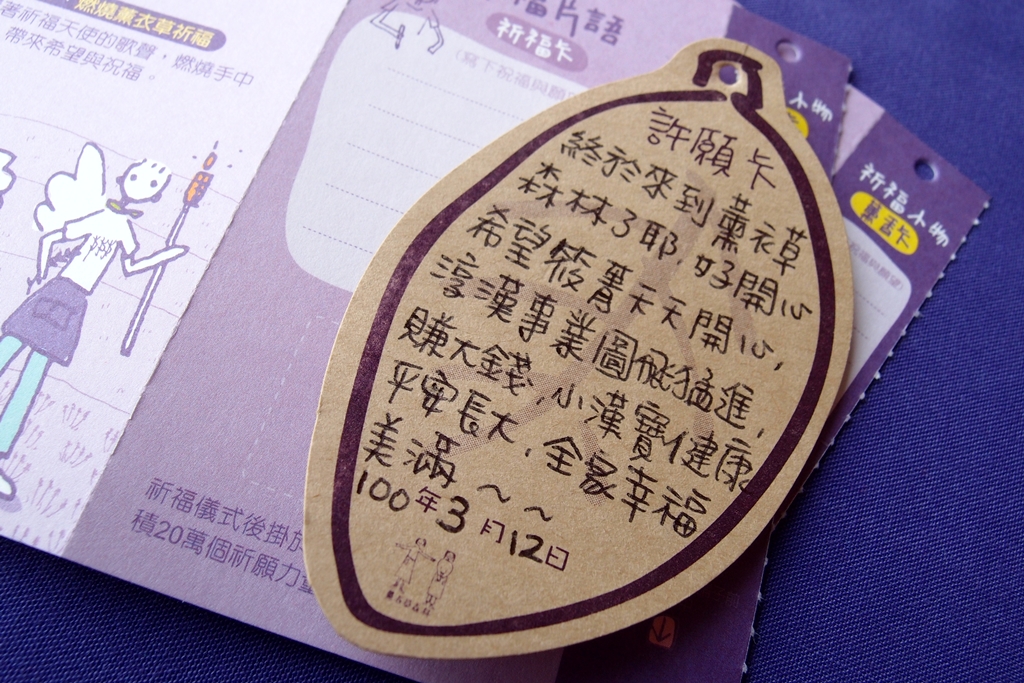 燃燒薰衣草祈福
著祈福天使的歌聲，燃燒手中
帶來希望與祝福。
福片語
祈福卡
許願卡
終於來到薰衣草
森林了耶,好開心
希望筱青天天開心,
淳漢事業圖飛猛進,
賺大錢,小漢寶健康
平安長大,全家幸福
美滿~~
100年3月12日
薰衣草森林
祈福儀式後掛於
積20萬個祈願力量
小物
祈福小物
薰香卡